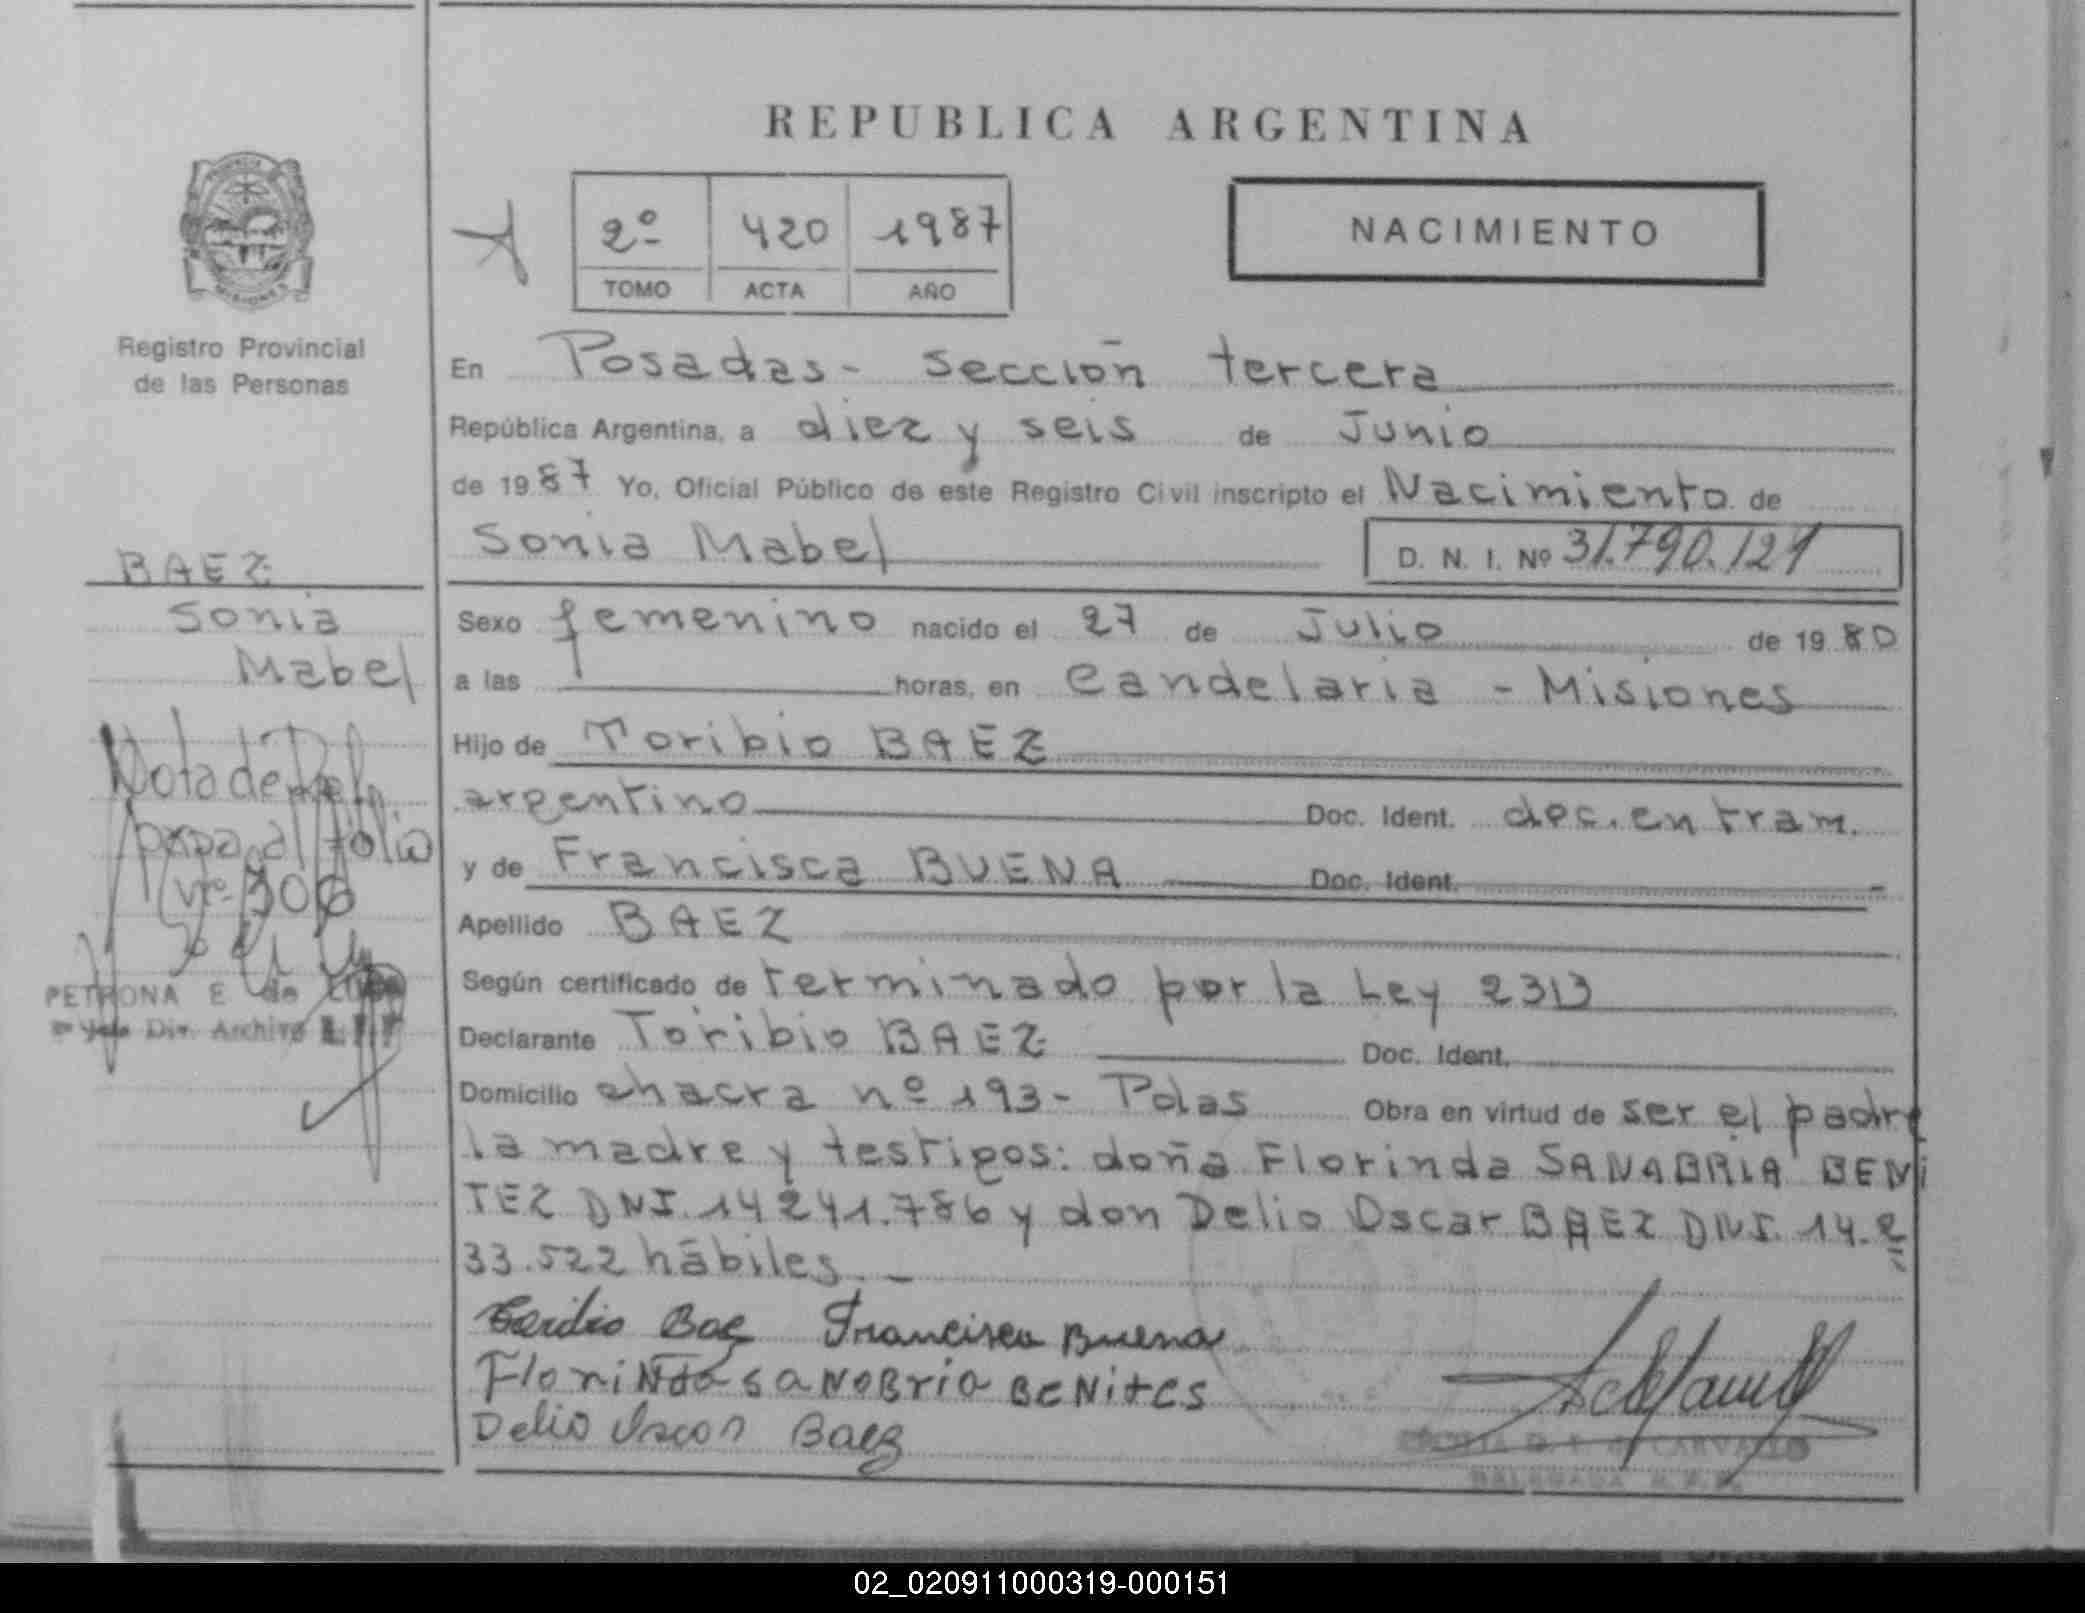 REPUBLICA ARGENTINA
2º 420 1987
TOMO ACTA AÑO
NACIMIENTO
PROVINCIA
MISIONES
Registro Provincial
de las Personas
BAEZ
Sonia
Mabel
Nota de Ref.
pasa al folio
Nº 306
PETRONA E de
Div. Archivo
En Posadas- Sección tercera
República Argentina, a diez y seis de Junio
de 1987 Yo, Oficial Público de este Registro Civil inscripto el Nacimiento de
Sonia Mabel D. N. I. Nº 31.790.121
Sexo femenino nacido el 27 de Julio de 1980
a las horas, en Candelaria - Misiones
Hijo de Toribio BAEZ
argentino Doc. Ident. doc. en tram.
y de Francisca BUENA Doc. Ident. -
Apellido BAEZ
Según certificado de terminado por la Ley 2313
Declarante Toribio BAEZ Doc. Ident.
Domicilio chacra nº 193- Pdas Obra en virtud de ser el padre
la madre y testigos: doña Florinda SANABRIA BENI
TEZ DNI. 14241.786 y don Delio Oscar BAEZ DNI. 14.2
33.522 hábiles.-
Baez Francisca Buena
Florinda SANABRIA BENITES
Delio Oscar Baez
CARVALLO
DELEGADA R.P.P.
02_020911000319-000151